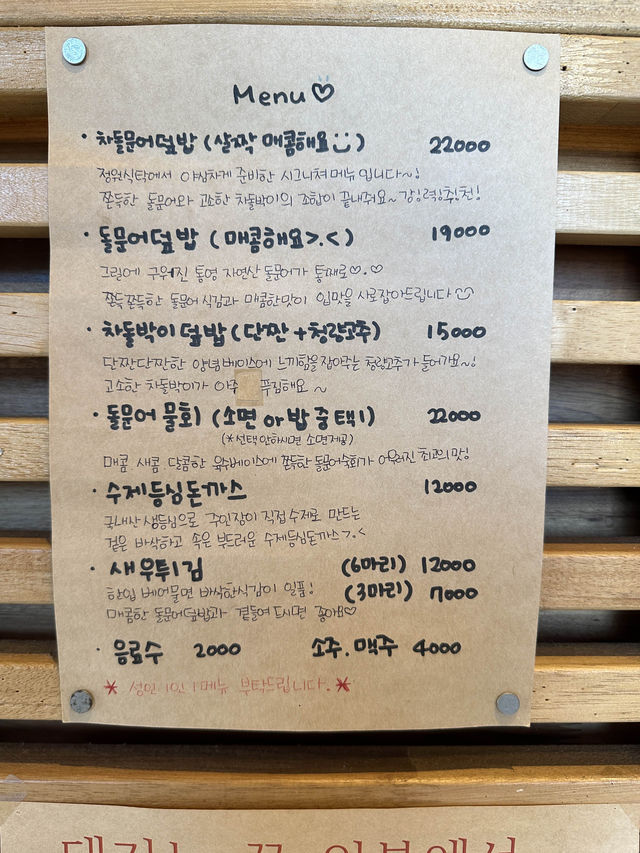 Menu♡
· 차돌문어덮밥 (살짝 매콤해요 :)) 22000
정원식탁에서 야심차게 준비한 시그니처메뉴입니다~!
쫀득한 돌문어와 고소한 차돌박이의 조합이 끝내줘요~ 강!력!추!천!
· 돌문어덮밥 (매콤해요>.<) 19000
그릴에 구워진 통영 자연산 돌문어가 통째로♡.♡
쫀득쫀득한 돌문어 식감과 매콤한맛이 입맛을 사로잡아드립니다
· 차돌박이덮밥 (단짠+청량고추) 15000
단짠단짠한 양념베이스에 느끼함을 잡아주는 청량고추가 들어가요~!
고소한 차돌박이가 아주 푸짐해요 ~
· 돌문어 물회 (소면 or 밥 중 택1) 22000
(*선택안하시면 소면제공)
매콤 새콤 달콤한 육수베이스에 쫀득한 돌문어숙회가 어우러진 최고의 맛!
· 수제등심돈까스 12000
국내산 생등심으로 주인장이 직접 수제로 만드는
겉은 바삭하고 속은 부드러운 수제등심돈까스>.<
· 새우튀김 (6마리) 12000
한입 베어물면 바삭한식감이 일품! (3마리) 7000
매콤한 돌문어덮밥과 곁들여 드시면 좋아요♡
· 음료수 2000 소주.맥주 4000
* 성인 1인 1메뉴 부탁드립니다.*